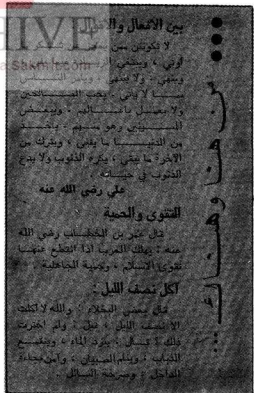 HIVE
a.sakhrit.com
من هنا وهناك ...
بين الأفعال والأقوال
لا تكونن ممن
أوتي ، ويبتغي
وينهى ، ولا ينتهي ، ويأمر الناس
بما لا يأتي ، يحب الصالحين
ولا يعمل بأعمالهم ، ويبغض
المسيئين وهو منهم ، يأخذ
من الدنيا ما يفنى ، ويترك من
الآخرة ما يبقى ، يكره الذنوب ولا يدع
الذنوب في حياته
علي رضى الله عنه
التقوى والحمية
قال عمر بن الخطاب رضى الله
عنه : يهلك العرب اذا انقطع عنها
تقوى الاسلام ، وحمية الجاهلية
أكل نصف الليل :
قال بعض البخلاء : والله لا آكلت
الا نصف الليل ، قيل : ولم اخترت
ذلك ؟ قال : يبرد الماء ، وينقمع
الذباب ، وينام الصبيان ، وآمن فجاءة
الداخل ، وصرخة السائل .